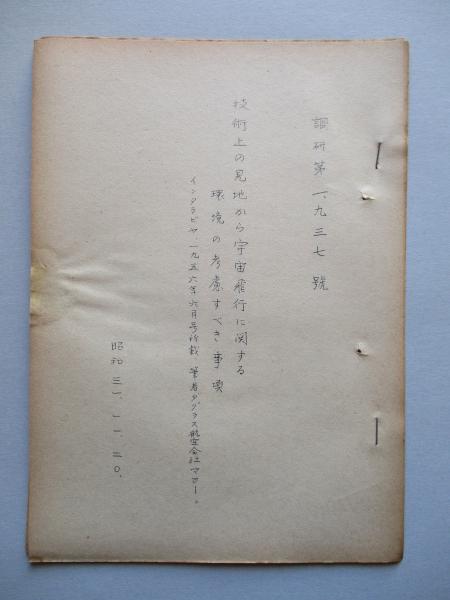 調研第一、九三七號
技術上の見地から宇宙飛行に関する
環境の考慮すべき事項
インタラビヤ、一九五六年六月号所載、筆者ダグラス航空会社マロー。
昭和三一、一一、二〇、